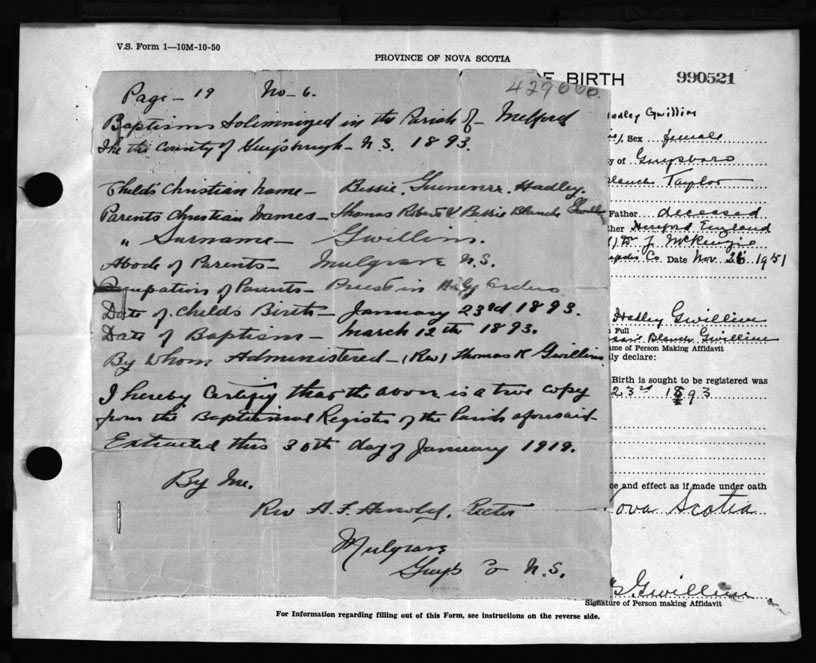 V.S. Form 1—10M-10-50
PROVINCE OF NOVA SCOTIA
OF BIRTH 990521
429000
Page - 19 No - 6.
Baptisms Solemnized in the Parish of - Melford
In the County of Guysbrugh - N.S. 1893.
Child's Christian name - Bessie. Hadley.
Parents Christian Names - Thomas Robert & Bessie Blanch Gwillim
" Surname - Gwillim.
Abode of Parents - Mulgrave N.S.
Occupation of Parents - Priest in Holy Orders
Date of Childs Birth - January 23rd 1893.
Date of Baptism - March 12th 1893.
By Whom Administered - (Rev) Thomas R Gwillim
I hereby Certify that the above is a true copy
from the Baptismal Register of the Parish aforesaid -
Extracted this 30th day of January 1919.
By Me.
Rev A. F. Arnold, Rector
Mulgrave
Guys Co N.S.
Hadley Gwillim
Sex female
of Guysboro
Taylor
Father deceased
Hereford England
Dr J. McKenzie
Co. Date Nov. 26 1951
Hadley Gwillim
Full
Blanch Gwillim
me of Person Making Affidavit
ly declare:
Birth is sought to be registered was
23rd 1893
ce and effect as if made under oath
Nova Scotia
Gwillim
Signature of Person making Affidavit
For Information regarding filling out of this Form, see instructions on the reverse side.